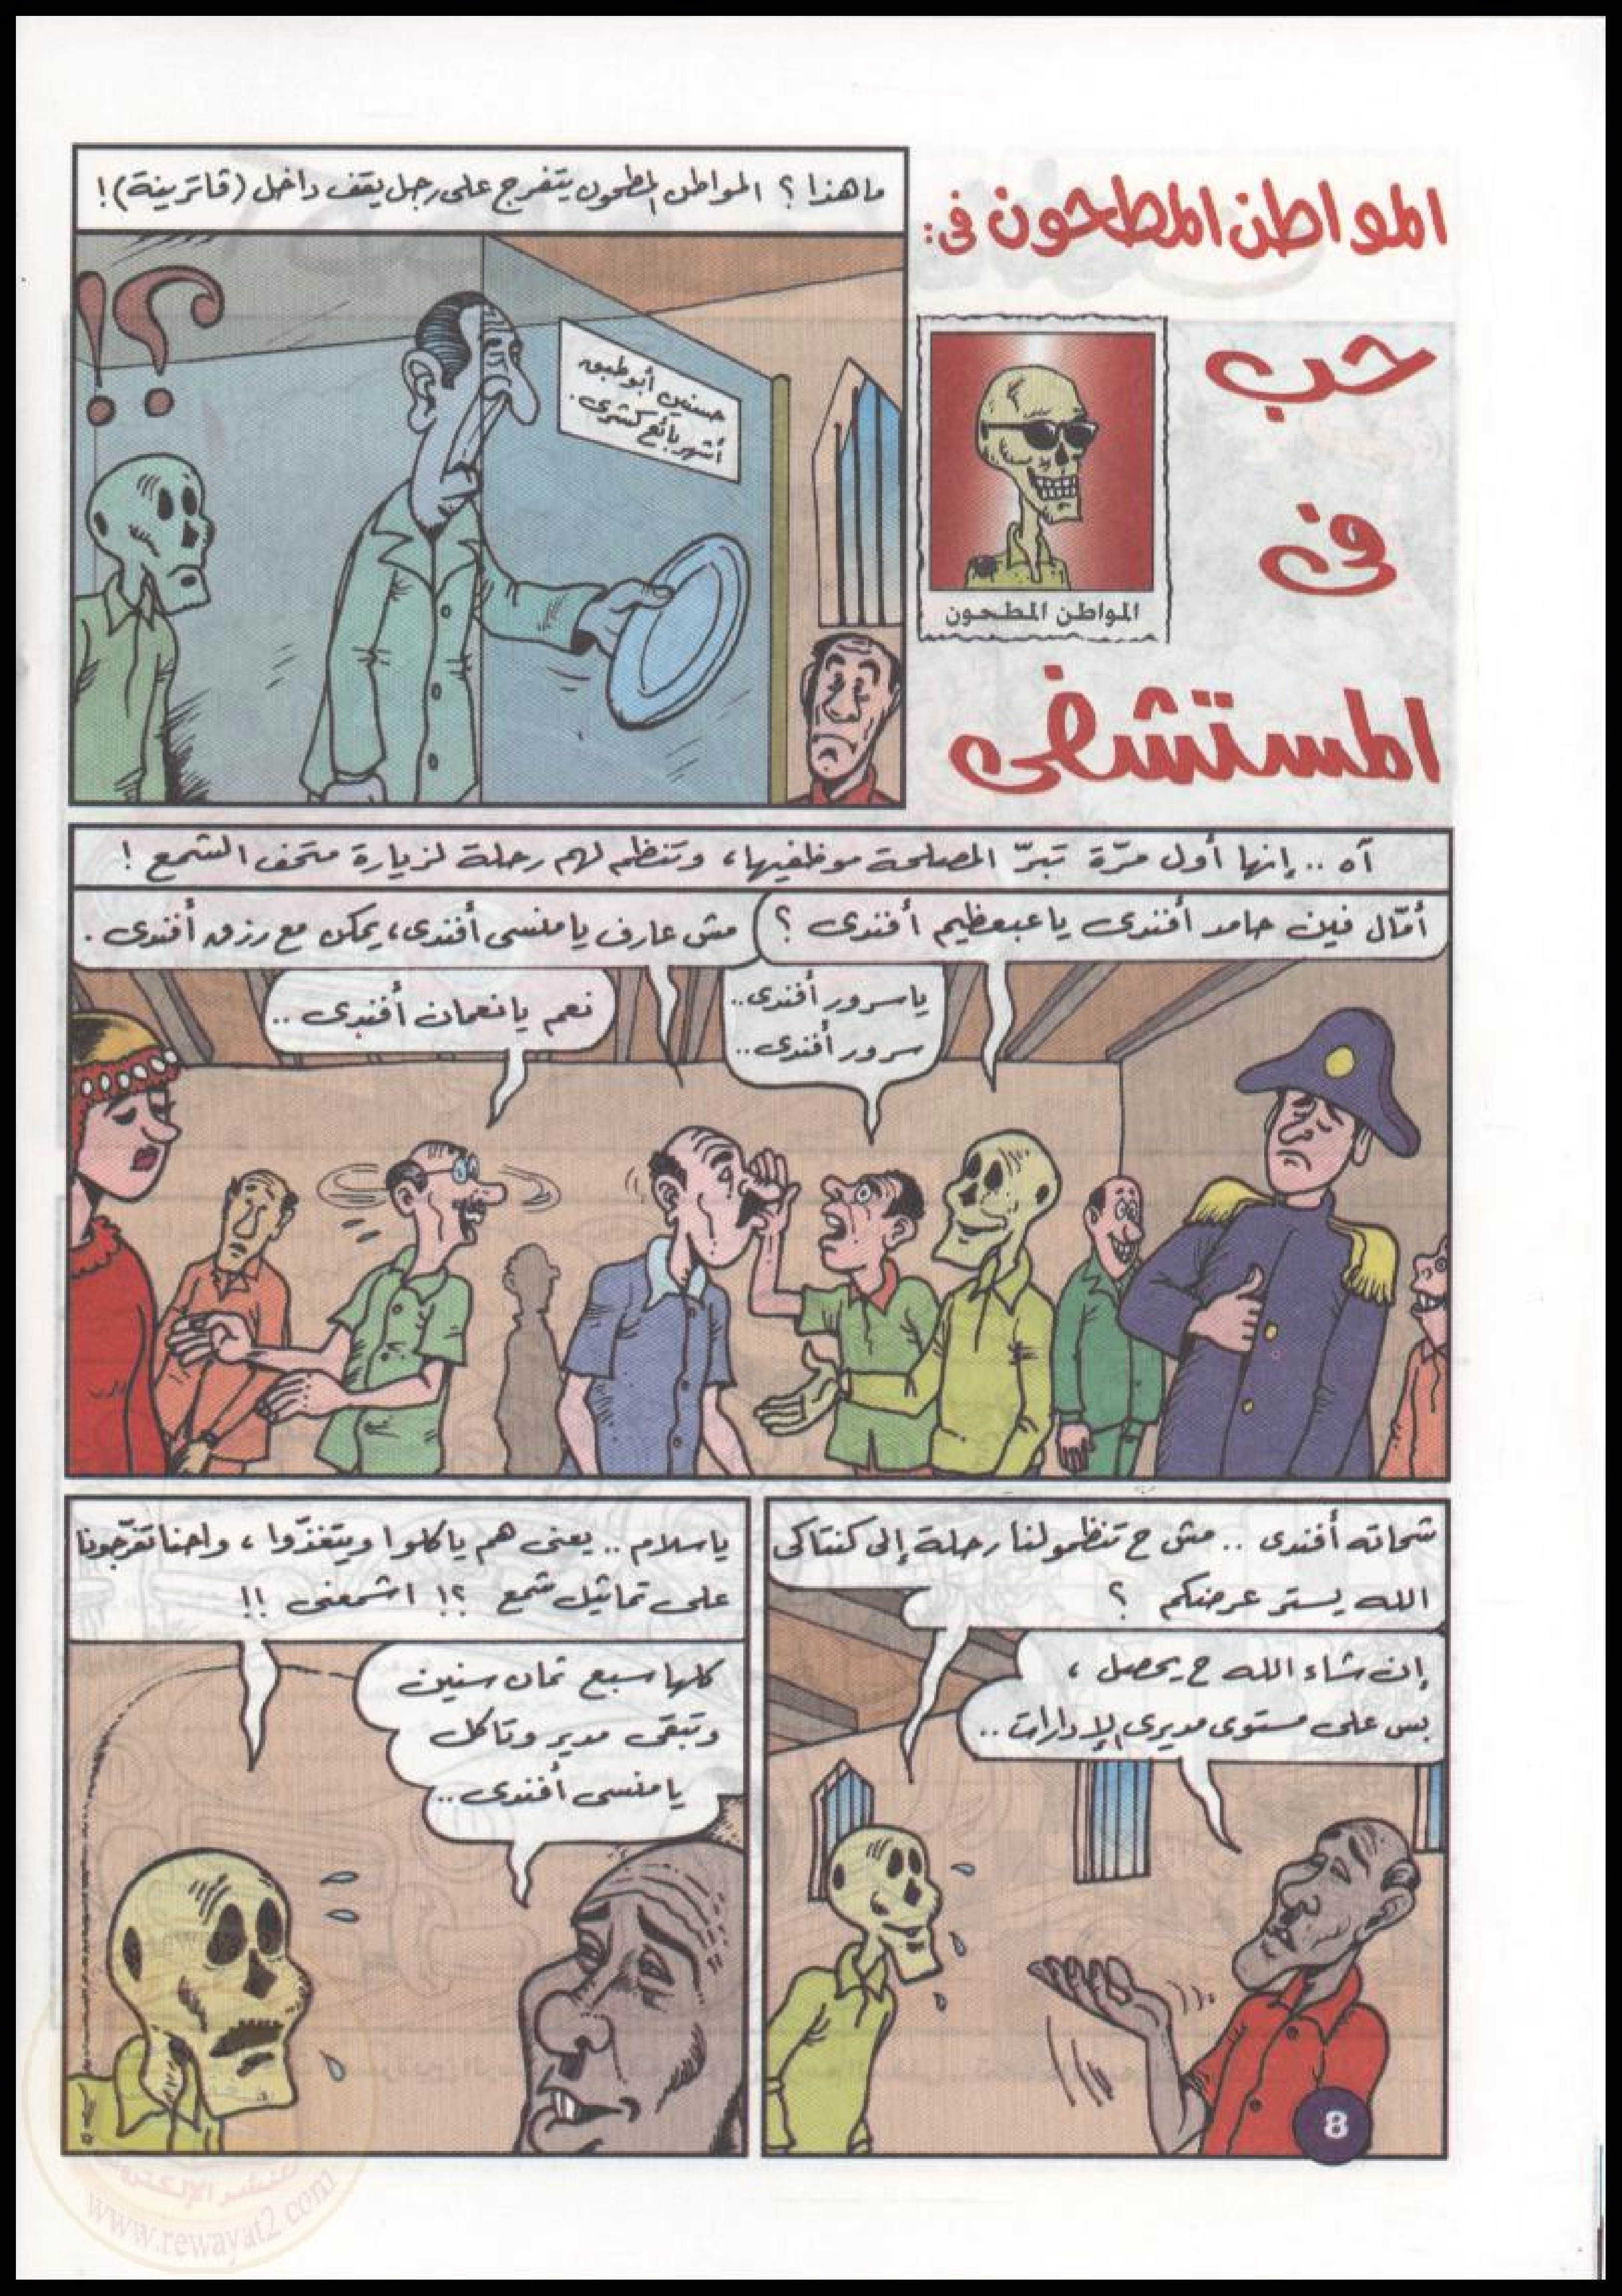 المواطن المطحون فى:
حب
فى
المستشفى
المواطن المطحون
ما هذا ؟ المواطن المطحون يتفرج على رجل يقف داخل (فاترينة) !
حسنين أبو طبق
أشهر بائع كشرى .
آه .. إنها أول مرّة تبرّ المصلحة موظفيها، وتنظم لهم رحلة لزيارة متحف الشمع !
أمّال فين حامد أفندى يا عبعظيم أفندى ؟
مش عارف يا منسى أفندى، يمكن مع رزق أفندى .
يا سرور أفندى..
سرور أفندى..
نعم يا نعمان أفندى ..
شحاته أفندى .. مش ح تنظمولنا رحلة إلى كنتاكى
الله يستر عرضكم ؟
إن شاء الله ح يحصل ،
بس على مستوى مديرى الإدارات ..
يا سلام .. يعنى هم ياكلوا ويتغذّوا ، واحنا تفرّجونا
على تماثيل شمع ؟! اشمعنى !!
كلها سبع تمان سنين
وتبقى مدير وتاكل
يا منسى أفندى ..
8
www.rewayat2.com